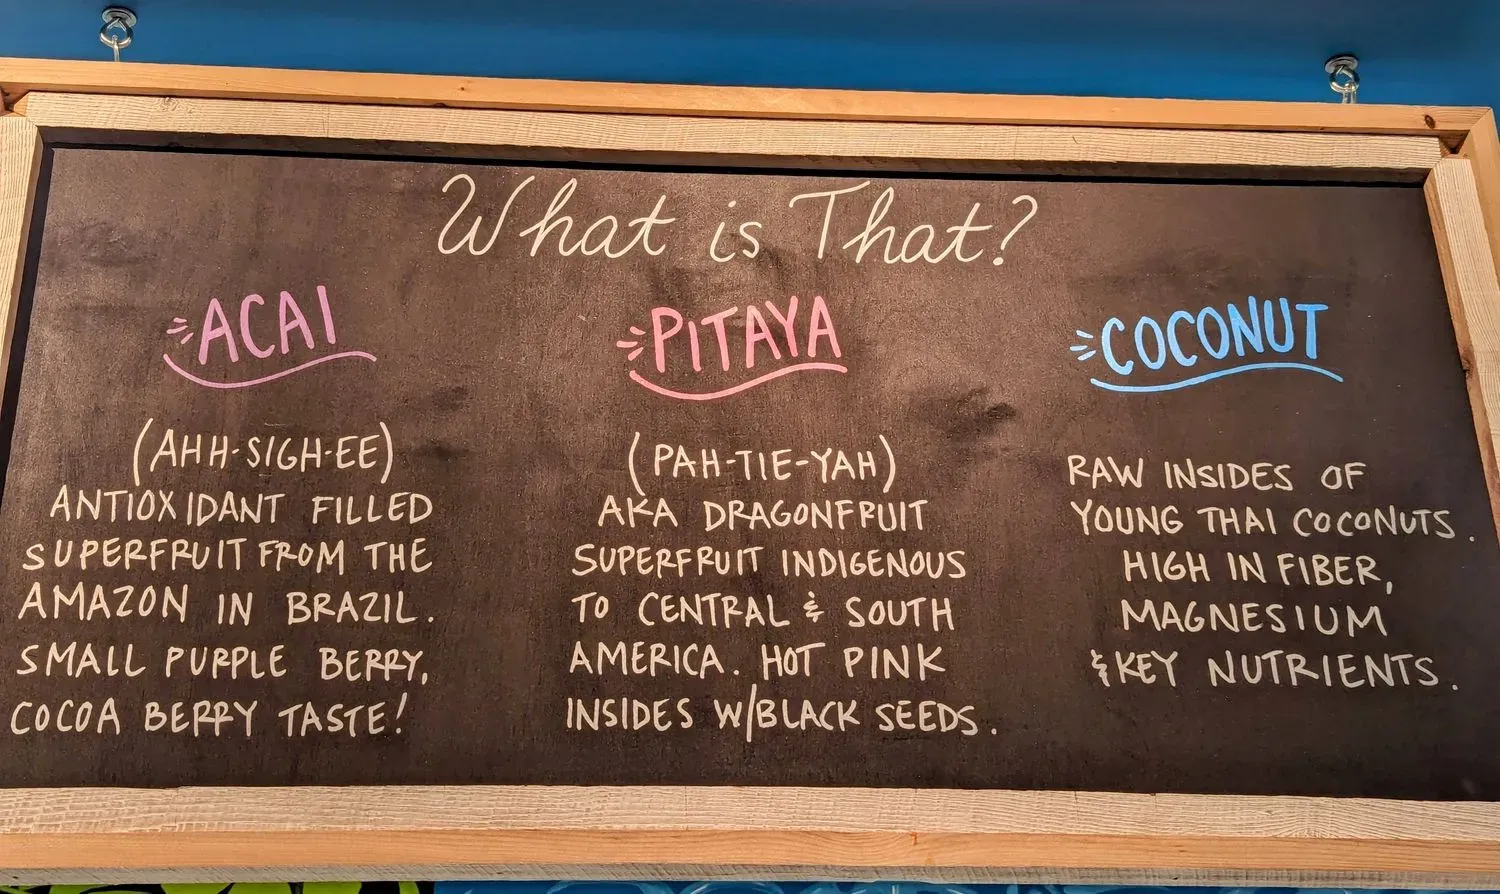 What is That?
ACAI
(AHH-SIGH-EE)
ANTIOXIDANT FILLED
SUPERFRUIT FROM THE
AMAZON IN BRAZIL.
SMALL PURPLE BERRY,
COCOA BERRY TASTE!
PITAYA
(PAH-TIE-YAH)
AKA DRAGONFRUIT
SUPERFRUIT INDIGENOUS
TO CENTRAL & SOUTH
AMERICA. HOT PINK
INSIDES W/BLACK SEEDS.
COCONUT
RAW INSIDES OF
YOUNG THAI COCONUTS.
HIGH IN FIBER,
MAGNESIUM
& KEY NUTRIENTS.